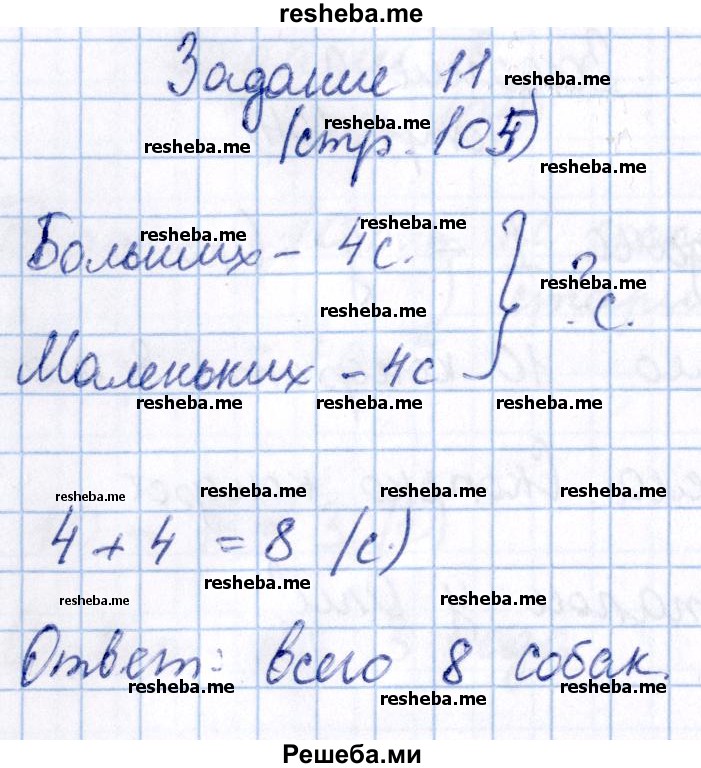 resheba.me
Задание 11
resheba.me
resheba.me
resheba.me
(стр. 105)
resheba.me
resheba.me
resheba.me
Больших - 4 с.
resheba.me
? с.
resheba.me
Маленьких - 4 с
resheba.me resheba.me resheba.me
resheba.me resheba.me resheba.me resheba.me
4 + 4 = 8 (с.)
resheba.me
resheba.me resheba.me
Ответ: всего 8 собак.
resheba.me resheba.me
resheba.me
Решеба.ми